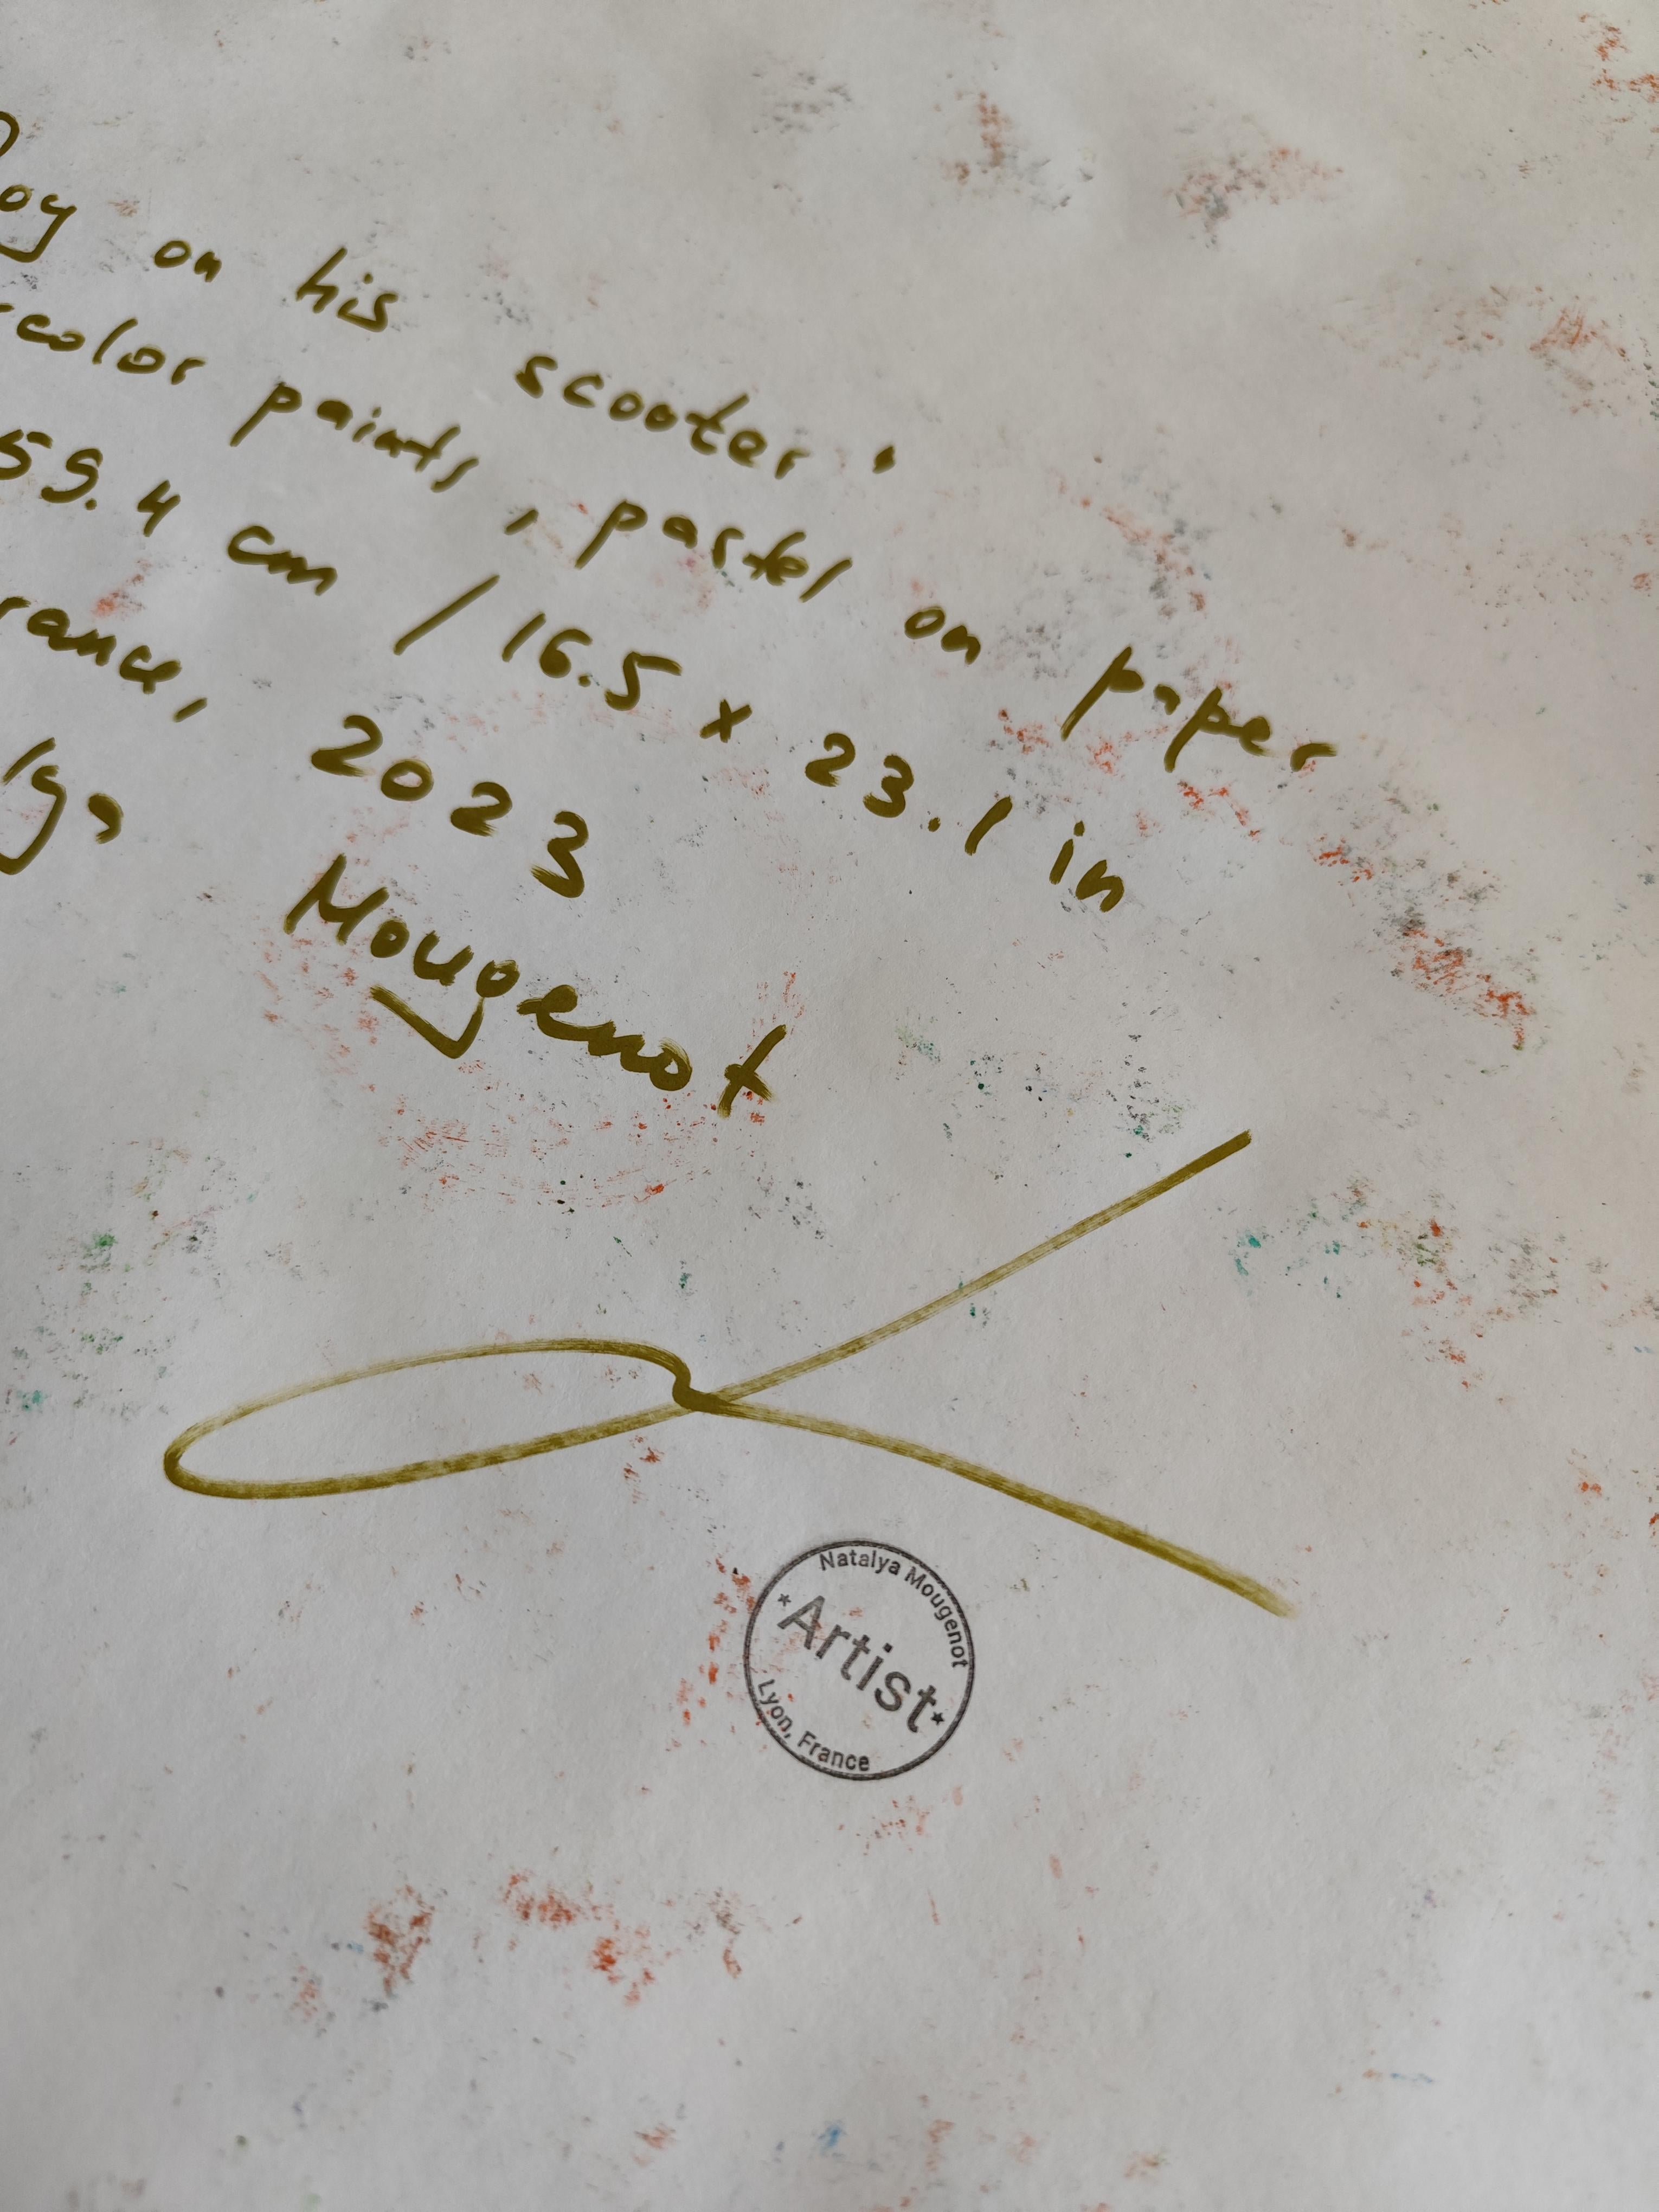 oy on his scooter"
color paints, pastel on paper
59.4 cm / 16.5 x 23.1 in
rance, 2023
lya Mougenot
Natalya Mougenot
Artist
Lyon, France